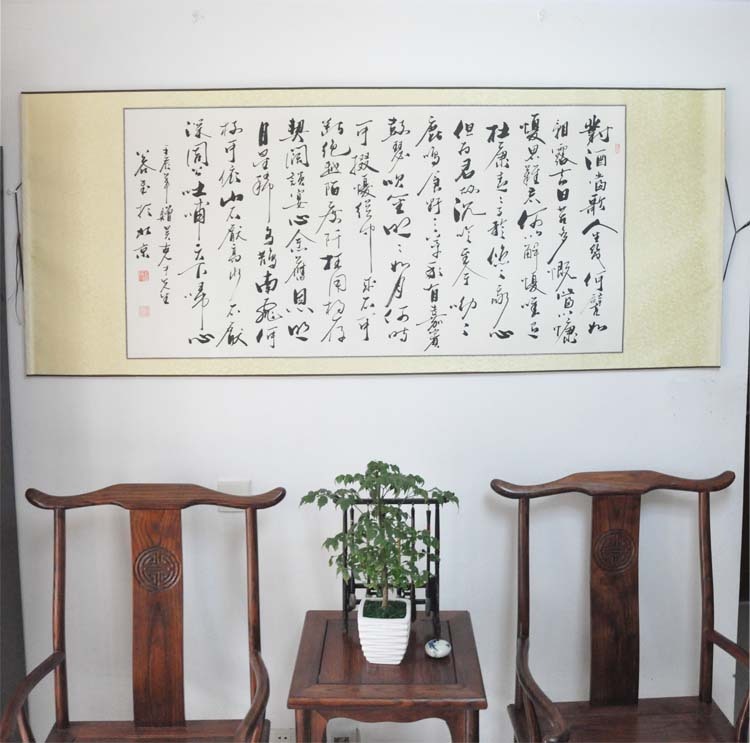 對酒當歌人生幾何譬如
朝露去日苦多慨當以慷
憂思難忘何以解憂唯有
杜康青々子衿悠々我心
但為君故沉吟至今呦々
鹿鳴食野之苹我有嘉賓
鼓瑟吹笙明々如月何時
可掇憂從中來不可
斷絕越陌度阡枉用相存
契闊談宴心念舊恩明
月星稀烏鵲南飛何
枝可依山不厭高水不厭
深周公吐哺天下歸心
壬辰年贈吴克才先生
於北京